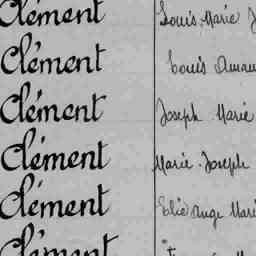 Clément Louis, Marie J
Clément Louis Aman
Clément Joseph Marie
Clément Marie Joseph
Clément Elie Ange Mari
Clément